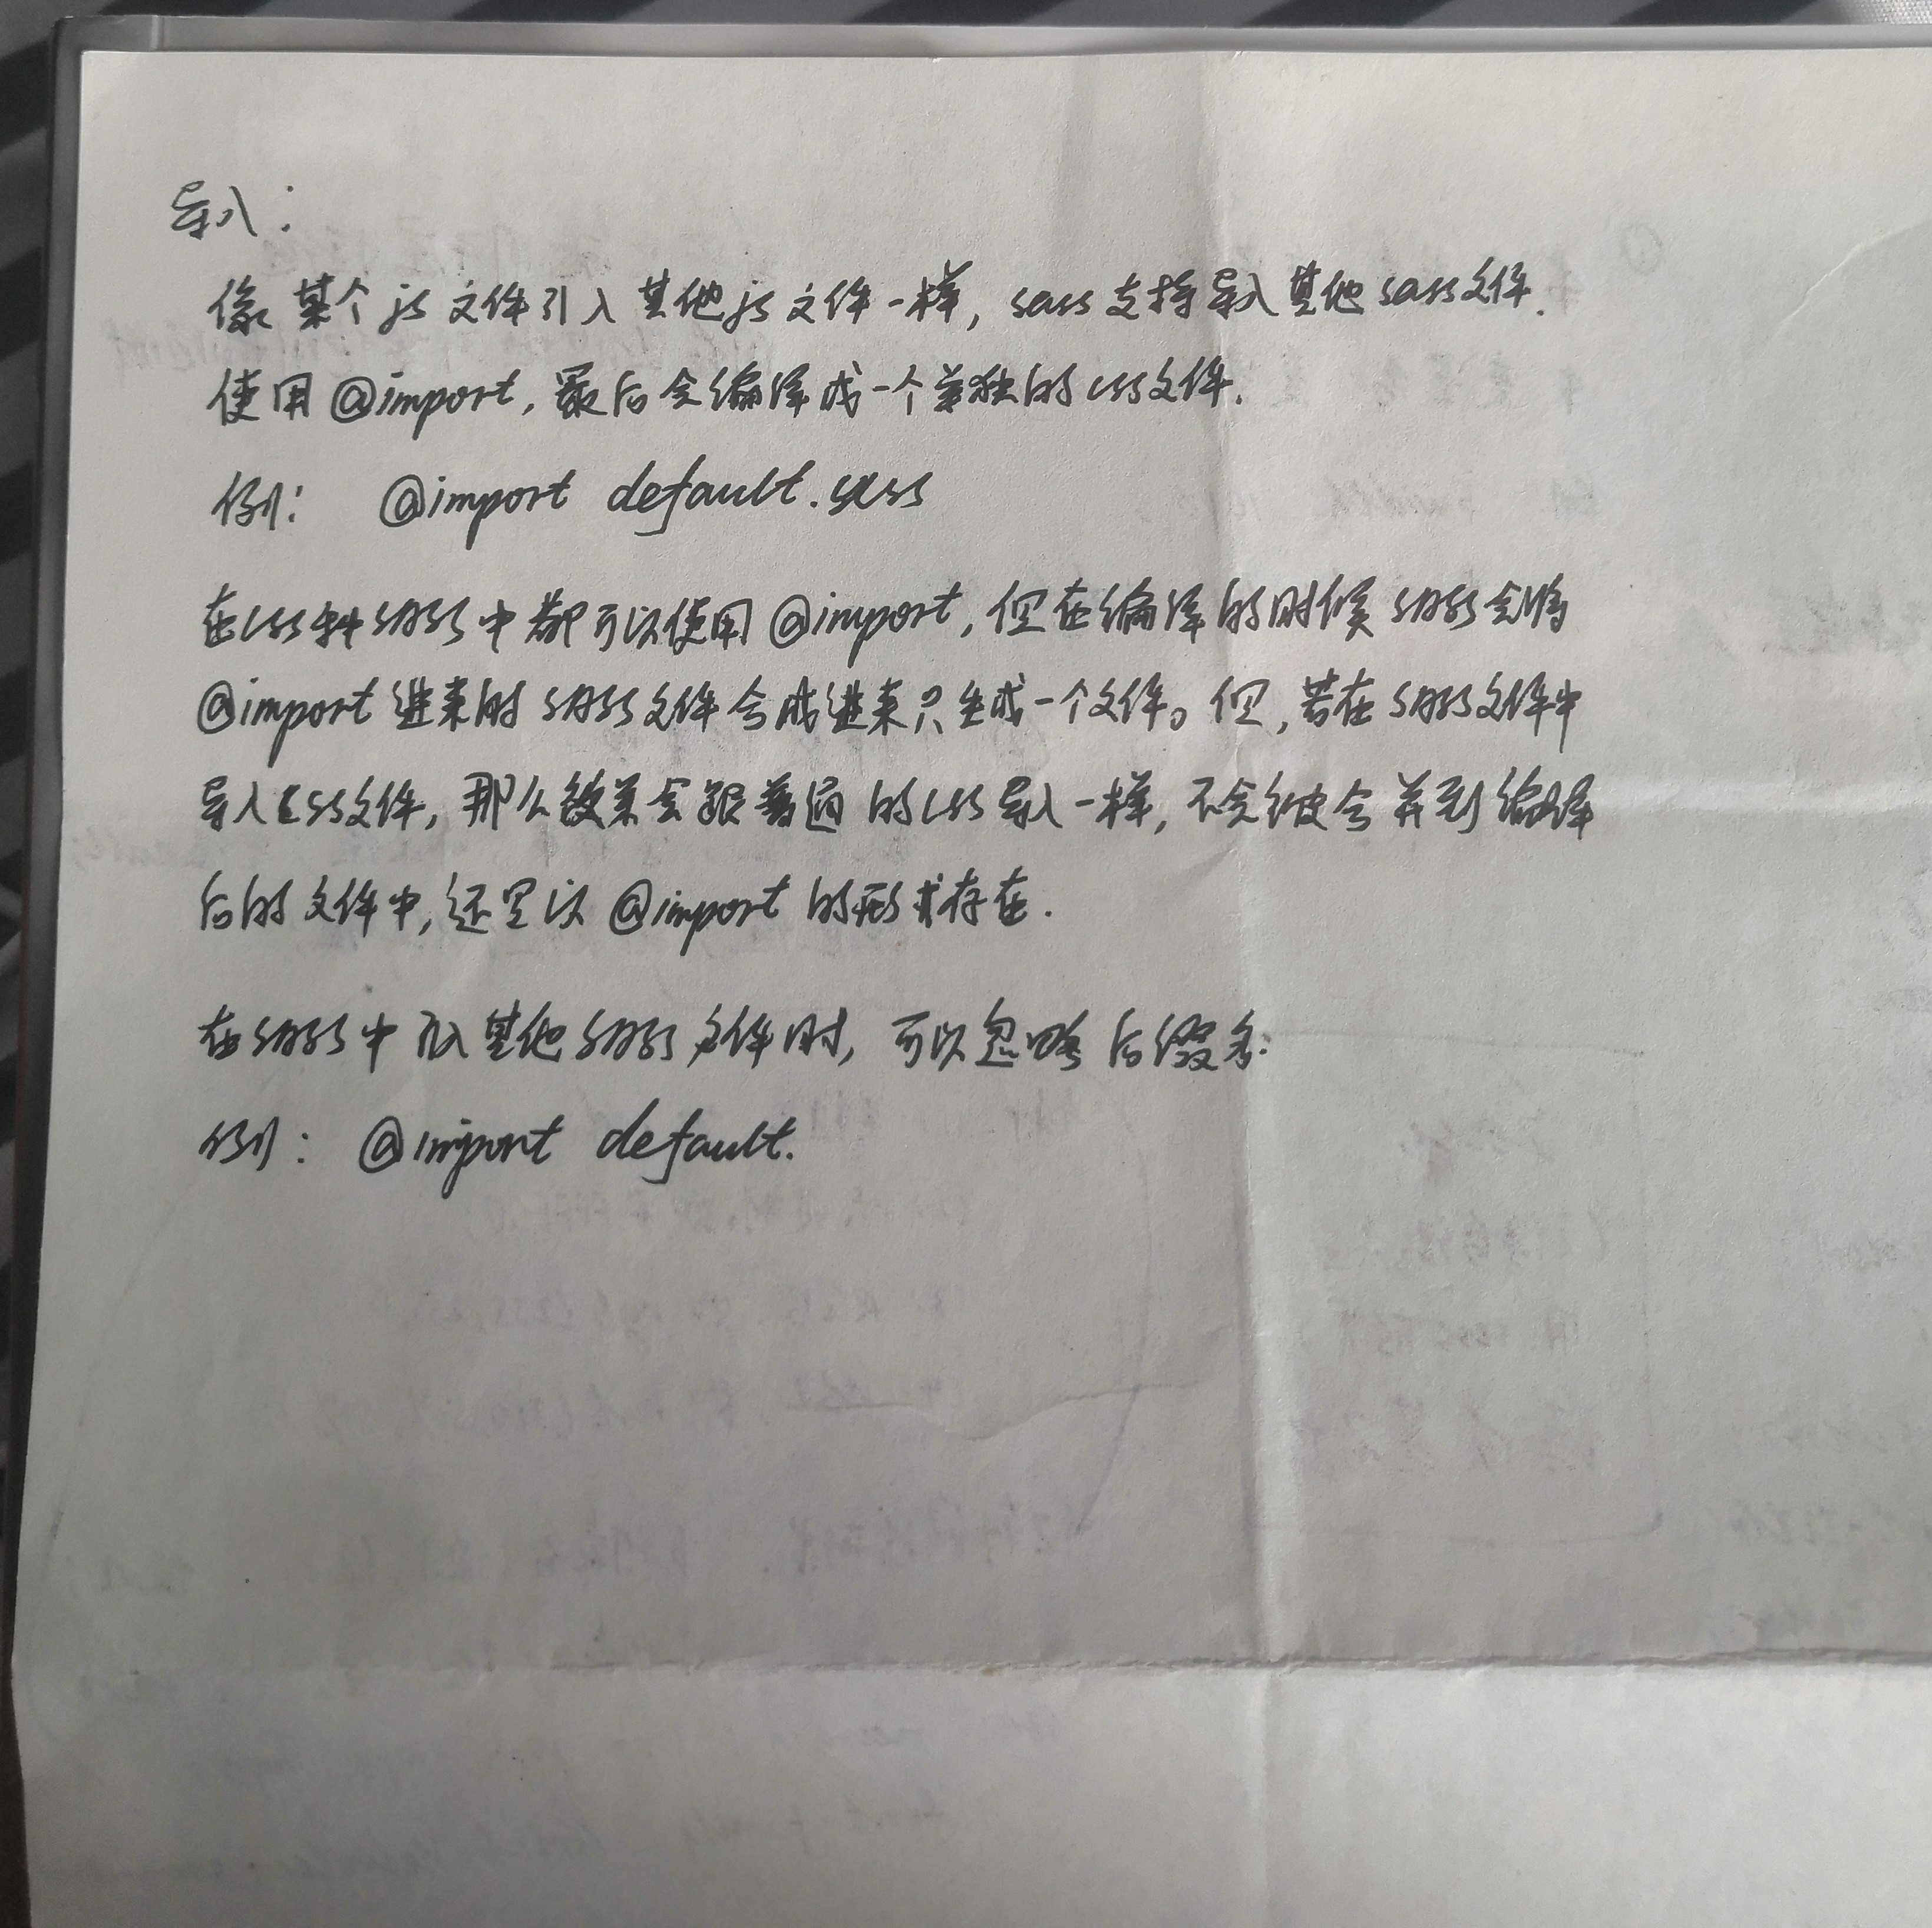 导入：
像某个js文件引入其他js文件一样, sass支持导入其他sass文件.
使用@import, 最后会编译成一个单独的css文件.
例: @import default.scss
在css和sass中都可以使用@import, 但在编译的时候sass会将
@import进来的sass文件合成进来只生成一个文件。但, 若在sass文件中
导入css文件, 那么效果会跟普通的css导入一样, 不会被合并到编译
后的文件中, 还是以@import的形式存在.
在sass中引入其他sass文件时, 可以忽略后缀名.
例: @import default.